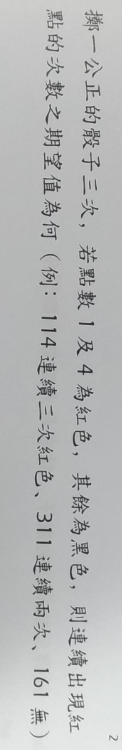 擲一公正的骰子三次，若點數 1 及 4 為紅色，其餘為黑色，則連續出現紅
點的次數之期望值為何（例：114 連續三次紅色、311 連續兩次、161 無）
2